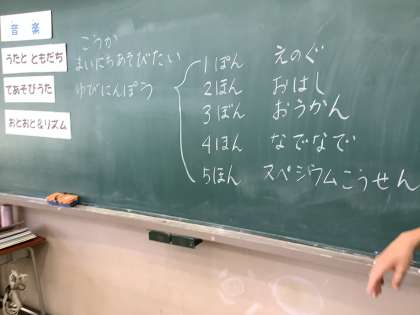 音楽
うたと ともだち
てあそびうた
おとおと&リズム
こうか
まいにちあそびたい
ゆびにんぽう
1ぽん えのぐ
2ほん おはし
3ぼん おうかん
4ほん なでなで
5ほん スペジウムこうせん